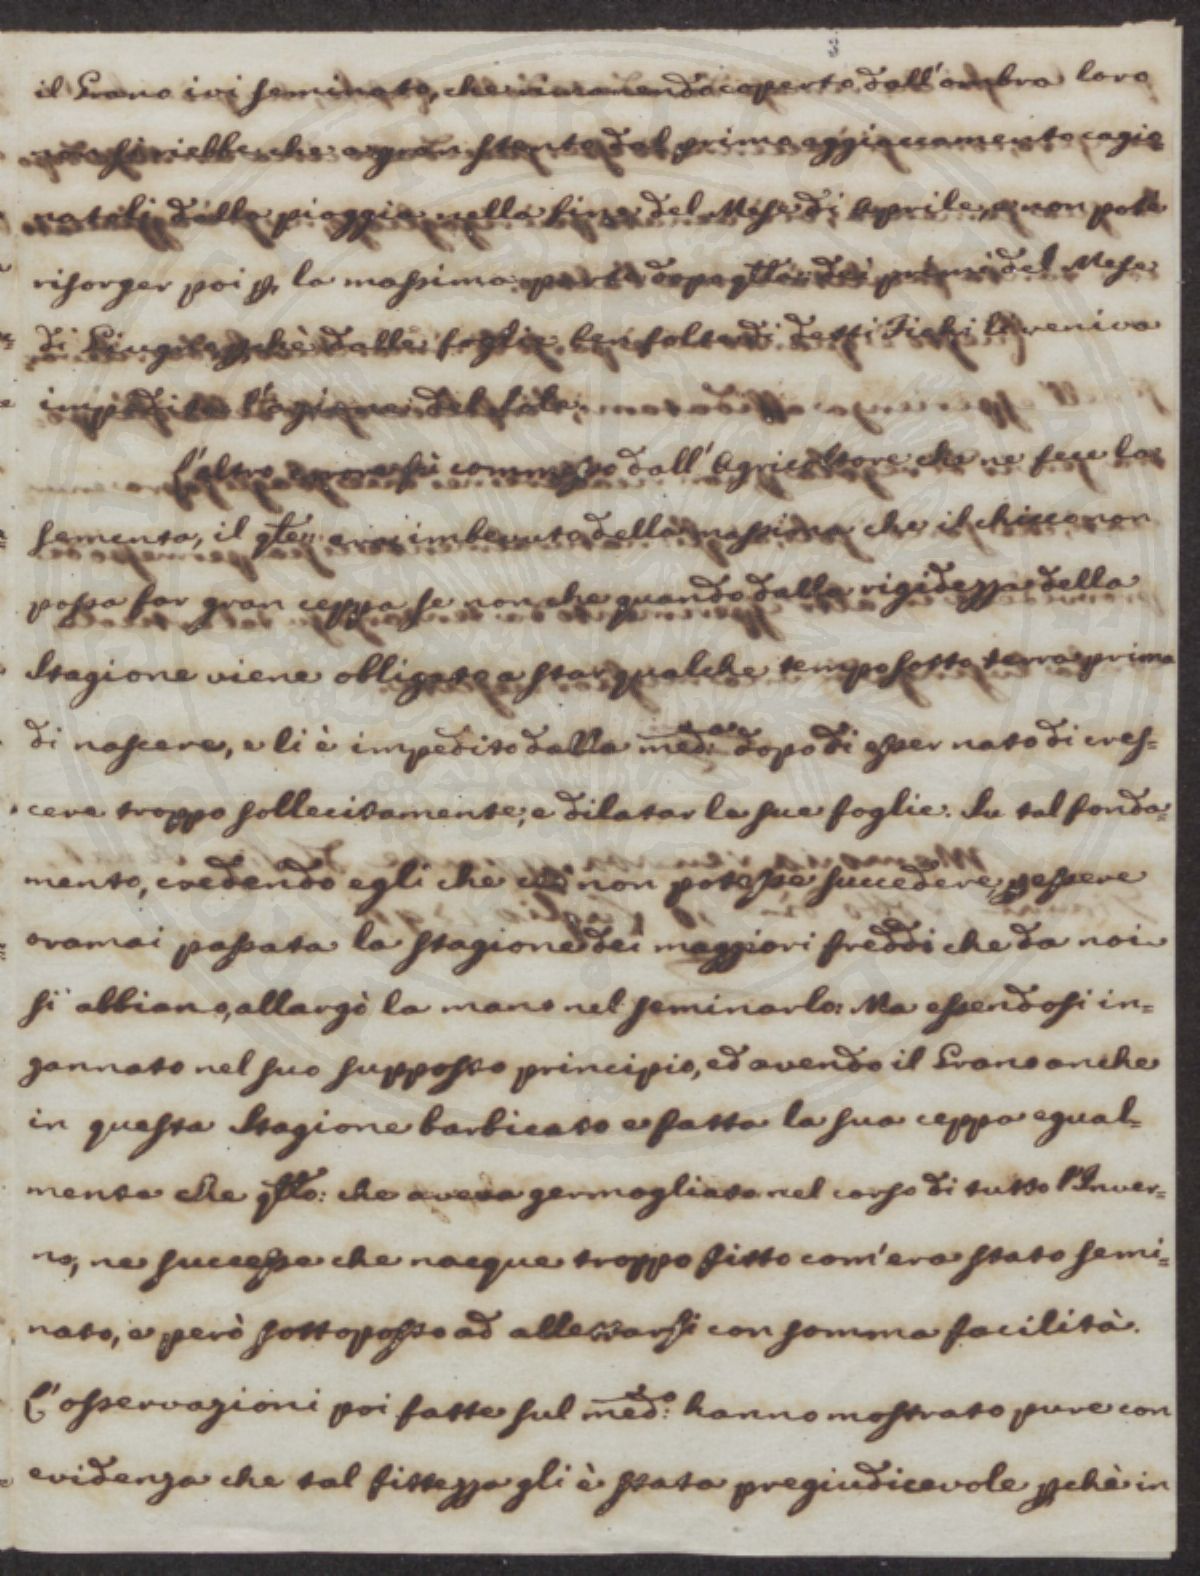 3
il Grano ivi seminato, che rimanendo coperto dall'ombra loro
non si riebbe che a gran stento dal primo aggiaccamento cagio
natoli dalla pioggia nella fine del Mese di Aprile, e non potè
risorger poi p. la massima parte dopo qlla dei primi del Mese
di Giugno, pchè dalle foglie ben folte di detti Fichi li veniva
impedita l'azione del sole.
L'altro errore fù commesso dall'Agricoltore che ne fece la
sementa, il qle: era imbevuto della massima che il chicco non
possa far gran ceppa se non che quando dalla rigidezza della
Stagione viene obligato a star qualche tempo sotto terra prima
di nascere, e li è impedito dalla med:ma dopo di esser nato di cres=
cere troppo sollecitamente, e dilatar le sue foglie. Su tal fonda=
mento, credendo egli che ciò non potesse succedere, p essere
oramai passata la stagione dei maggiori freddi che da noi
si abbiano, allargò la mano nel seminarlo: Ma essendosi in=
gannato nel suo supposto principio, ed avendo il Grano anche
in questa Stagione barbicato e fatta la sua ceppa egual=
mente che qllo: che aveva germogliato nel corso di tutto l'Inver=
no, ne successe che nacque troppo fitto com'era stato semi=
nato, e però sottoposto ad allettarsi con somma facilità.
L'osservazioni poi fatte sul med:mo hanno mostrato pure con
evidenza che tal fittezza gli è stata pregiudicevole pchè in